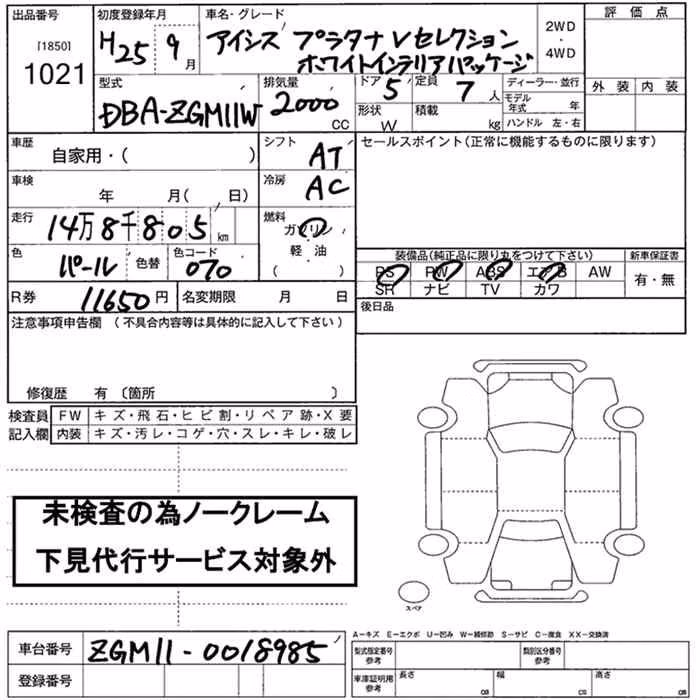 出品番号 初度登録年月 車名・グレード 評価点
[1850] 1021 H25 9月 アイシス プラタナ Vセレクション 2WD・4WD
ホワイトインテリアパッケージ
型式 排気量 ドア 定員 ディーラー・並行 外装 内装
DBA-ZGM11W 2000 CC 5 7人 モデル年式 年
形状 W 積載 kg ハンドル 左・右
車歴 自家用・( ) シフト AT セールスポイント(正常に機能するものに限ります)
車検 年 月( 日) 冷房 AC
走行 14万8千805km 燃料 ガソリン
軽・油
( )
色 パール 色替 色コード 070 装備品(純正品に限り丸をつけて下さい) 新車保証書
PS PW ABS エアB AW 有・無
SR ナビ TV カワ
R券 11650円 名変期限 月 日 後日品
注意事項申告欄 (不具合内容等は具体的に記入して下さい)
修復歴 有 (箇所 )
検査員 FW キズ・飛石・ヒビ割・リペア跡・X要
記入欄 内装 キズ・汚レ・コゲ・穴・スレ・キレ・破レ
未検査の為ノークレーム
下見代行サービス対象外
スペア
A-キズ E-エクボ U-凹み W-補修跡 S-サビ C-腐食 XX-交換済
車台番号 ZGM11-0018985 型式指定番号 参考 類別区分番号 参考
登録番号 車庫証明用 参考 長さ cm 幅 cm 高さ cm